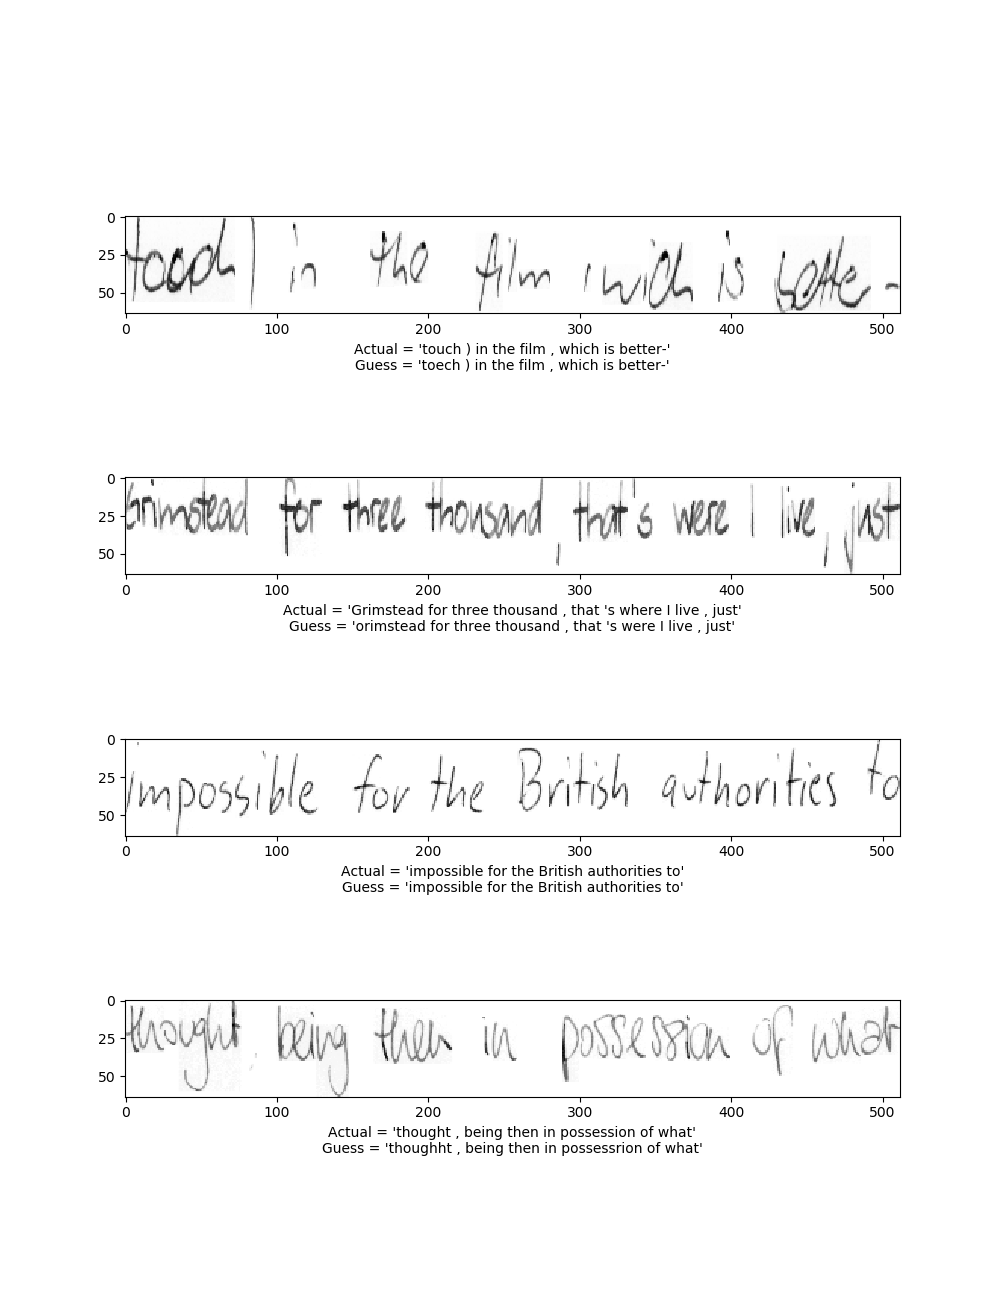 0
25
50
touch ) in the film , which is better -
0 100 200 300 400 500
Actual = 'touch ) in the film , which is better-'
Guess = 'toech ) in the film , which is better-'
0
25
50
Grimstead for three thousand , that's were I live , just
0 100 200 300 400 500
Actual = 'Grimstead for three thousand , that 's where I live , just'
Guess = 'orimstead for three thousand , that 's were I live , just'
0
25
50
impossible for the British authorities to
0 100 200 300 400 500
Actual = 'impossible for the British authorities to'
Guess = 'impossible for the British authorities to'
0
25
50
thought , being then in possession of what
0 100 200 300 400 500
Actual = 'thought , being then in possession of what'
Guess = 'thoughht , being then in possessrion of what'